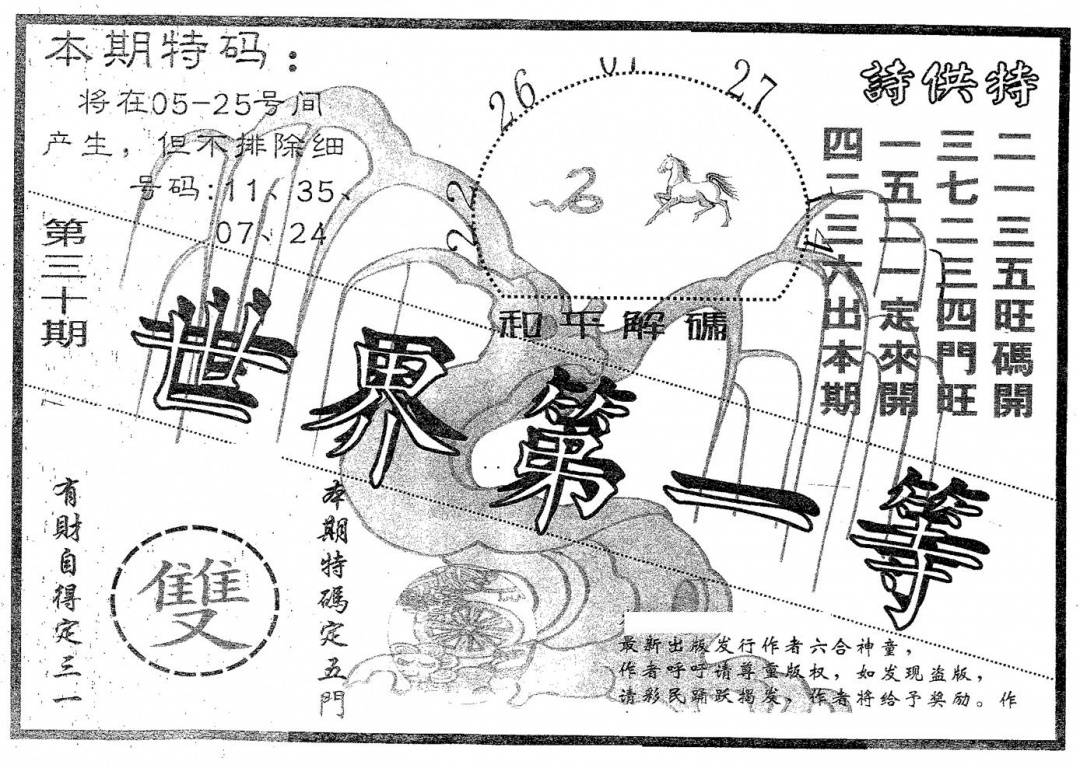 本期特码：
将在05-25号间
产生，但不排除细
号码:11、35、
07、24
第三十期
26
27
22
22
和平解碼
詩供特
二一三五旺碼開
三七二三四門旺
一五二一定來開
四二三六出本期
世界第一等
有財自得定三一
雙
本期特碼定五門
最新出版发行作者六合神童，
作者呼吁请尊重版权，如发现盗版，
请彩民踊跃揭发，作者将给予奖励。作